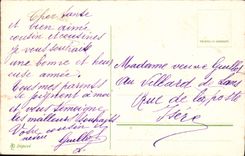 Cher tante
et bien aimé
cousin et cousines
je vous souhaite
une bonne et heureuse
année.
Tous mes parents
se joignent à moi
et vous témoigne
les meilleurs souhaits
Votre cousin et
neveu Guillot
Madame veuve Guillot
au Villard de Lans
Rue de la poste
Isère
Déposé